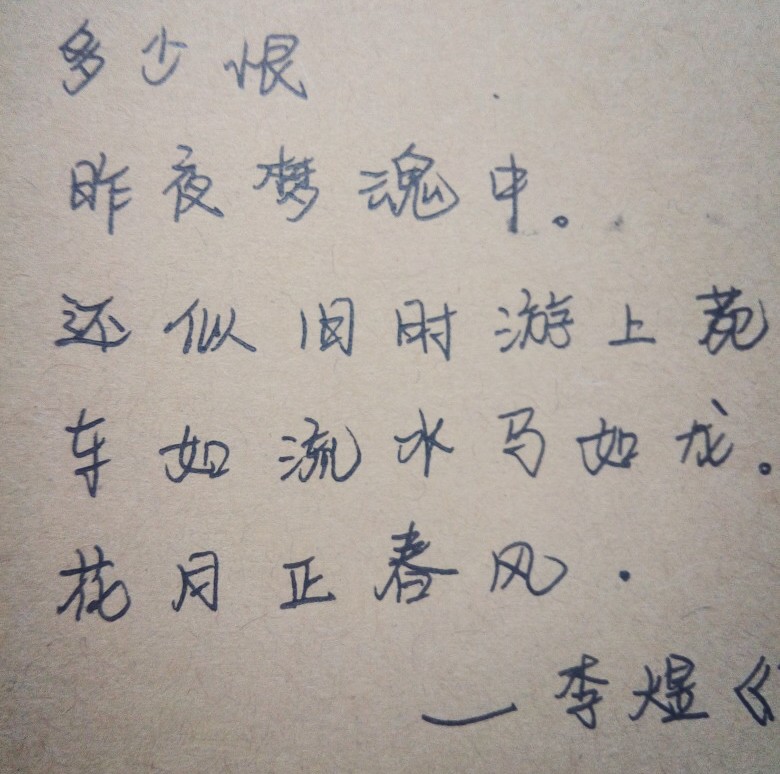 多少恨
昨夜梦魂中。
还似旧时游上苑
车如流水马如龙。
花月正春风.
—李煜《